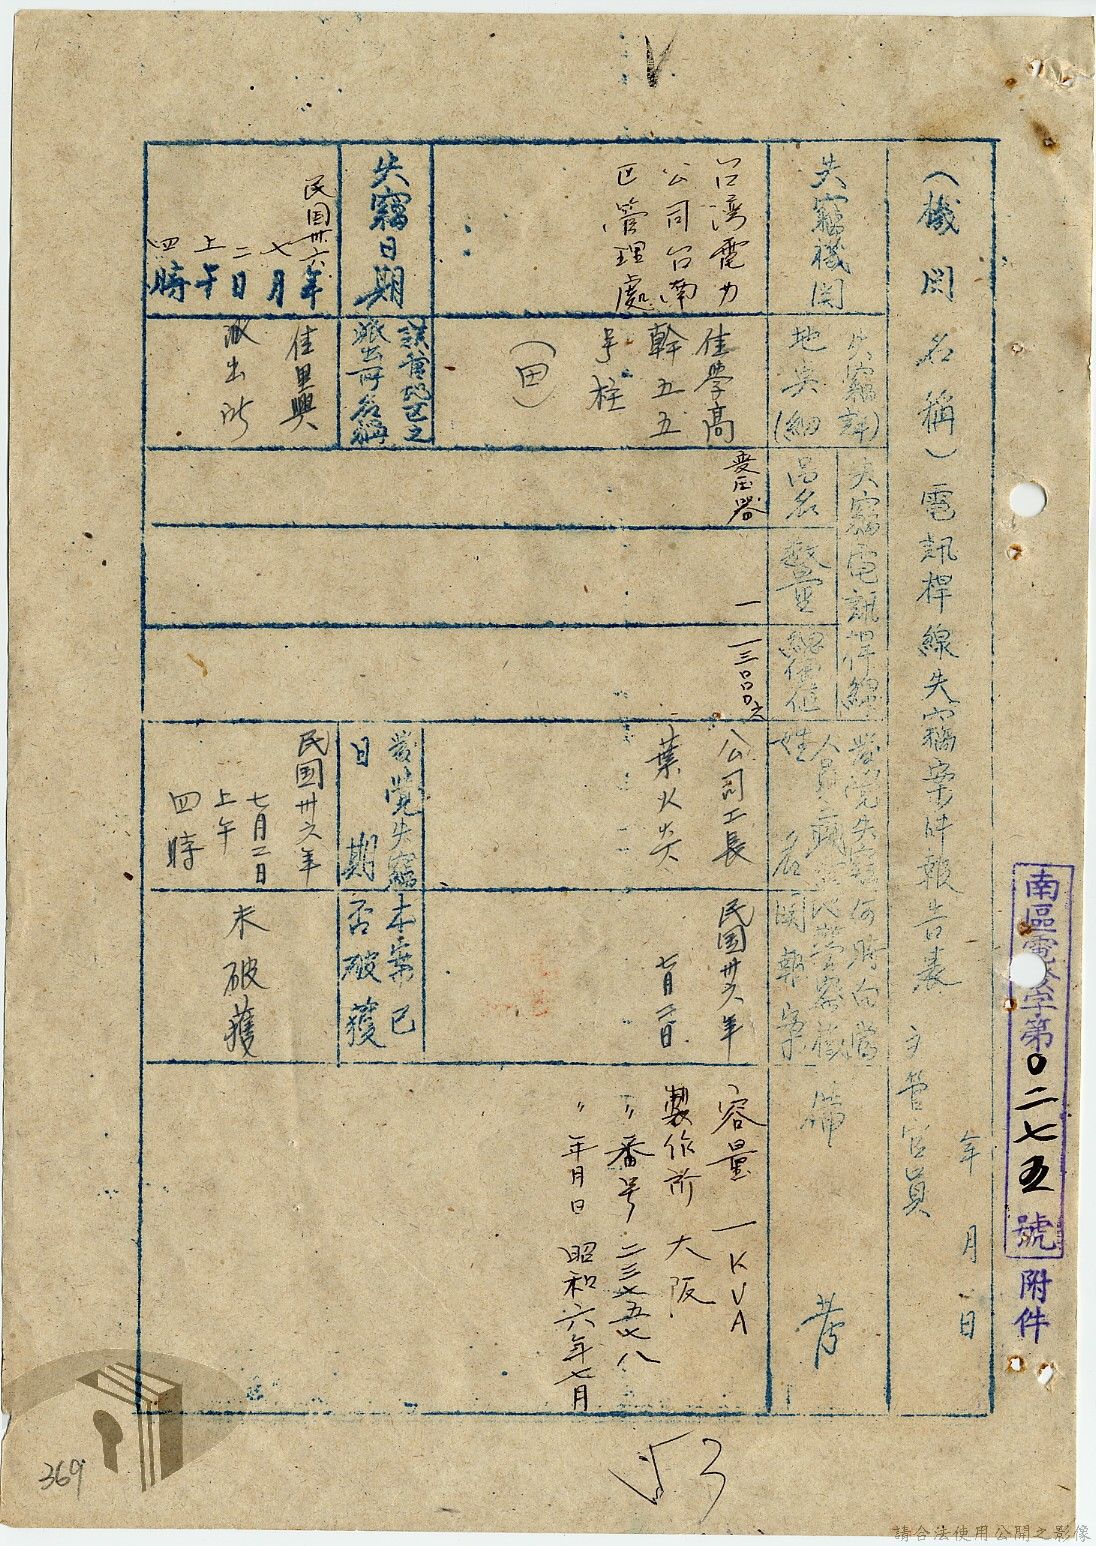 南區電務字第0二七五號附件
年 月 日
(機関名稱)電訊桿線失窃案件報告表 主管官員
失竊機関
失竊詳
地点(細)
失竊電訊桿線
品名
數量
總價值
發覺失竊
人員職
姓名
何時向當
地警察機
関報案
備考
台湾電力
公司台南
区管理處
佳學高
幹五五
号柱
(田)
变压器
一
公司工長
葉火炎
民国卅六年
七月二日
容量 一KVA
製作所 大阪
〃番号 二三七五七八
〃年月日 昭和六年七月
失竊日期
該管地区之
派出所名稱
發覺失竊
日期
本案已
否破獲
民国卅六年
七月
二日
上午
四時
佳里興
派出所
民国卅六年
七月二日
上午
四時
未破獲
53
369
請合法使用公開之影像